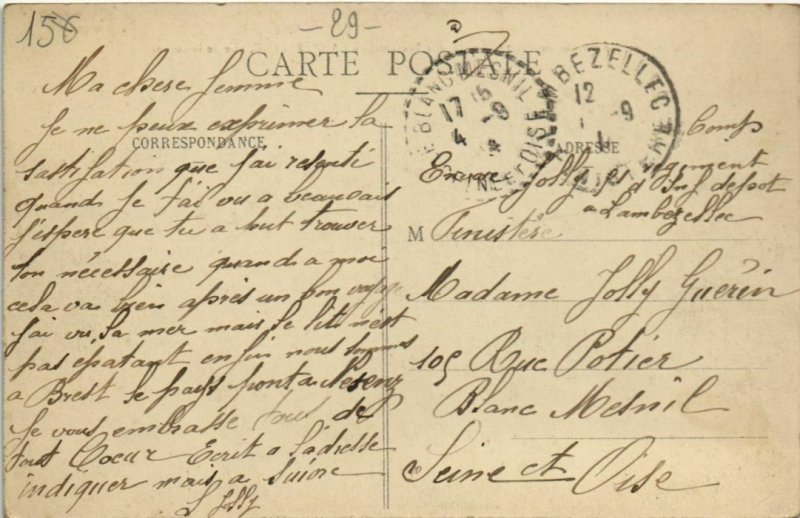 156
-29-
CARTE POSTALE
Ma chere femme
Je ne peux exprimer la
CORRESPONDANCE
satisfation que j'ai resenti
quand je t'ai vu a beauvais
j'espere que tu a but trouver
ton nécessaire quand a moi
cela va bien après un bon voyage
j'ai vu la mer mais le lit n'est
pas épatant enfin nous sommes
a Brest le pays
je vous embrasse tous de
tout Coeur Ecrit a l'adresse
indiquer mais a suivre
Jolly
BLANC MESNIL
17 15
4 -9
SEINE ET OISE
LAMBEZELLEC
12 -9
FINISTERE
ADRESSE
Comp
Jolly regiment
d'Inf depot
a Lambezellec
M Finistère
Madame Jolly Guerin
105 Rue Potier
Blanc Mesnil
Seine et Oise